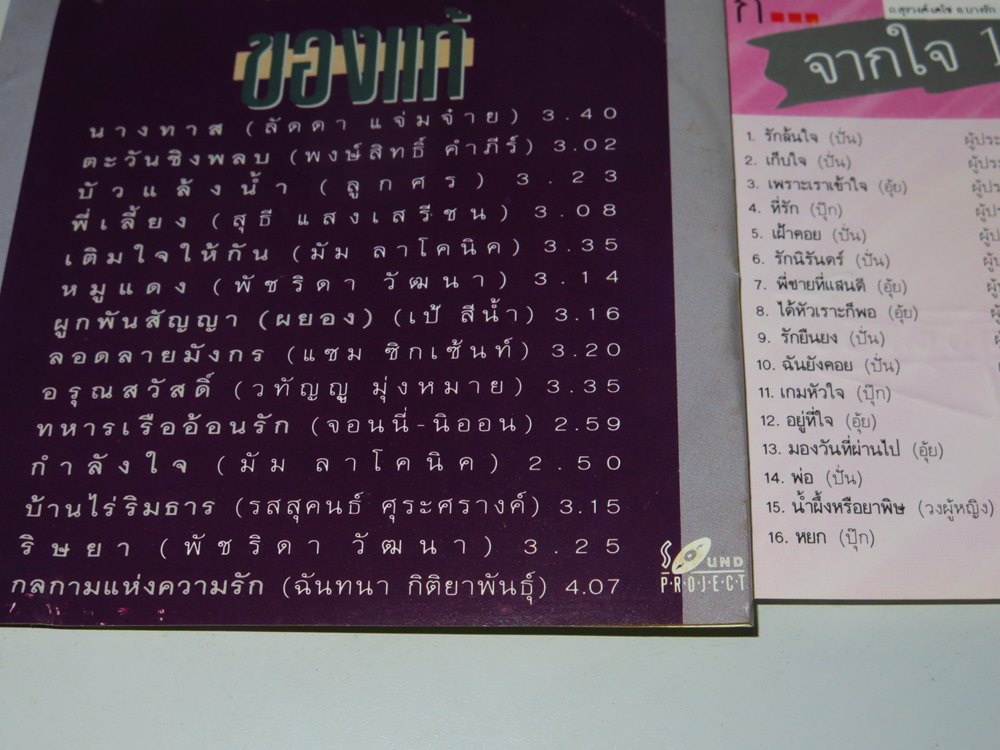 ของแท้
นางทาส (ลัดดา แจ่มจ๋าย) 3.40
ตะวันชิงพลบ (พงษ์สิทธิ์ คำภีร์) 3.02
บัวแล้งน้ำ (ลูกศร) 3.23
พี่เลี้ยง (สุธี แสงเสรีชน) 3.08
เติมใจให้กัน (มัม ลาโคนิค) 3.35
หมูแดง (พัชริดา วัฒนา) 3.14
ผูกพันสัญญา (ผยอง) (เป้ สีน้ำ) 3.16
ลอดลายมังกร (แซม ซิกเซ้นท์) 3.20
อรุณสวัสดิ์ (วทัญญู มุ่งหมาย) 3.35
ทหารเรืออ้อนรัก (จอนนี่-นิออน) 2.59
กำลังใจ (มัม ลาโคนิค) 2.50
บ้านไร่ริมธาร (รสสุคนธ์ ศุระศรางค์) 3.15
ริษยา (พัชริดา วัฒนา) 3.25
กลกามแห่งความรัก (ฉันทนา กิติยาพันธุ์) 4.07
SOUND
PROJECT
ถ.สุรวงศ์-เดโช อ.บางรัก
ก...
จากใจ 1
1. รักล้นใจ (ปั่น) ผู้ประ
2. เก็บใจ (ปั่น) ผู้ประ
3. เพราะเราเข้าใจ (อุ้ย) ผู้ประ
4. ที่รัก (ปุ๊ก) ผู้ป
5. เฝ้าคอย (ปั่น) ผู้ป
6. รักนิรันดร์ (ปั่น) ผู้
7. พี่ชายที่แสนดี (อุ้ย) ผู้
8. ได้หัวเราะก็พอ (อุ้ย)
9. รักยืนยง (ปั่น)
10. ฉันยังคอย (ปั่น)
11. เกมหัวใจ (ปุ๊ก)
12. อยู่ที่ใจ (อุ้ย)
13. มองวันที่ผ่านไป (อุ้ย)
14. พ่อ (ปั่น)
15. น้ำผึ้งหรือยาพิษ (วงผู้หญิง)
16. หยก (ปุ๊ก)